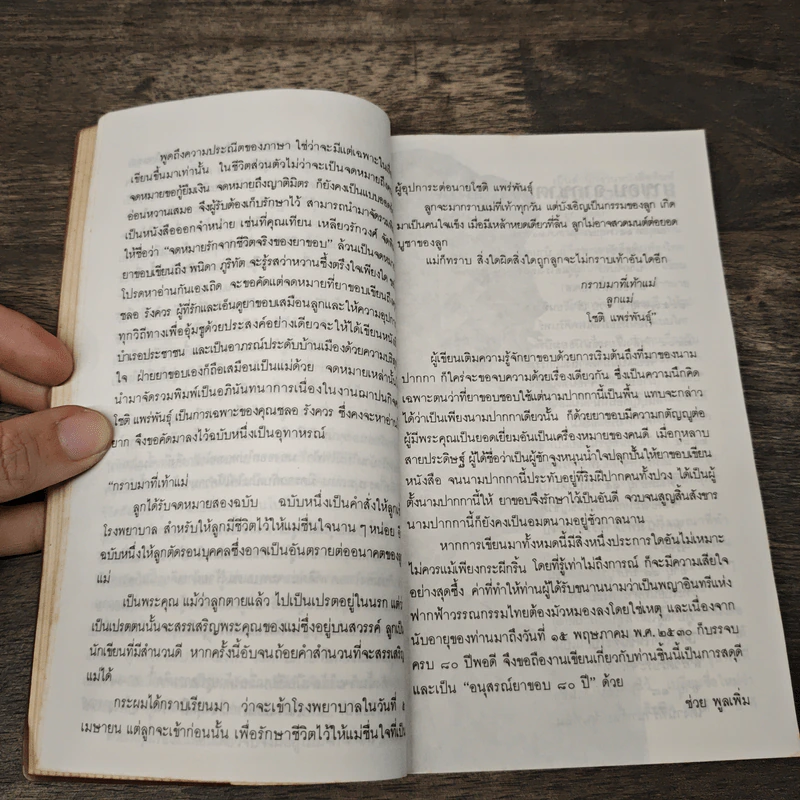 พูดถึงความประณีตของภาษา ใช่ว่าจะมีแต่เฉพาะใน
เขียนขึ้นมาเท่านั้น ในชีวิตส่วนตัวไม่ว่าจะเป็นจดหมายถึง
จดหมายขอกู้ยืมเงิน จดหมายถึงญาติมิตร ก็ยังคงเป็นแบบ
อ่อนหวานเสมอ จึงผู้รับต้องเก็บรักษาไว้ สามารถนำมาจัดรวม
เป็นหนังสือออกจำหน่าย เช่นที่คุณเทียน เหลียวรักวงศ์
ให้ชื่อว่า “จดหมายรักจากชีวิตจริงของยาขอบ” ล้วนเป็น
ยาขอบเขียนถึง พนิดา ภูริทัต จะรู้รสว่าหวานซึ้งตรึงใจเพียงใด
โปรดหาอ่านกันเองเถิด จะขอคัดแต่จดหมายที่ยาขอบเขียนถึง
ชลอ รังควร ผู้ที่รักและเอ็นดูยาขอบเสมือนลูกและให้ความ
ทุกวิถีทางเพื่ออุ้มชูด้วยประสงค์อย่างเดียวจะให้ได้เขียน
บำเรอประชาชน และเป็นอาภรณ์ประดับบ้านเมืองด้วยความ
ใจ ฝ่ายยาขอบเองก็ถือเสมือนเป็นแม่ด้วย จดหมายเหล่านั้น
นำมาจัดรวมพิมพ์เป็นอภินันทนาการเนื่องในงานฌาปนกิจ
โชติ แพร่พันธุ์ เป็นการเฉพาะของคุณชลอ รังควร ซึ่งคงจะหาอ่าน
ยาก จึงขอคัดมาลงไว้ฉบับหนึ่งเป็นอุทาหรณ์
“กราบมาที่เท้าแม่
ลูกได้รับจดหมายสองฉบับ ฉบับหนึ่งเป็นคำสั่งให้ลูก
โรงพยาบาล สำหรับให้ลูกมีชีวิตไว้ให้แม่ชื่นใจนาน ๆ หน่อย
ฉบับหนึ่งให้ลูกตัดรอนบุคคลซึ่งอาจเป็นอันตรายต่ออนาคตของ
แม่
เป็นพระคุณ แม้ว่าลูกตายแล้ว ไปเป็นเปรตอยู่ในนรก
เป็นเปรตตนนั้นจะสรรเสริญพระคุณของแม่ซึ่งอยู่บนสวรรค์
นักเขียนที่มีสำนวนดี หากครั้งนี้อับจนถ้อยคำสำนวนที่จะสรรเสริญ
แม่ได้
กระผมได้กราบเรียนมา ว่าจะเข้าโรงพยาบาลในวันที่
เมษายน แต่ลูกจะเข้าก่อนนั้น เพื่อรักษาชีวิตไว้ให้แม่ชื่นใจที่
ผู้อุปการะต่อนายโชติ แพร่พันธุ์
ลูกจะมากราบแม่ที่เท้าทุกวัน แต่บังเอิญเป็นกรรมของลูก เกิด
มาเป็นคนใจแข็ง เมื่อมีเหล้าหยดเดียวที่ลิ้น ลูกไม่อาจสวดมนต์ต่อยอด
บูชาของลูก
แม่ก็ทราบ สิ่งใดผิดสิ่งใดถูกลูกจะไม่กราบเท้าอันใดอีก
กราบมาที่เท้าแม่
ลูกแม่
โชติ แพร่พันธุ์”
ผู้เขียนเติมความรู้จักยาขอบด้วยการเริ่มต้นถึงที่มาของนาม
ปากกา ก็ใคร่จะขอจบความด้วยเรื่องเดียวกัน ซึ่งเป็นความนึกคิด
เฉพาะตนว่าที่ยาขอบชอบใช้แต่นามปากกานี้เป็นพื้น แทบจะกล่าว
ได้ว่าเป็นเพียงนามปากกาเดียวนั้น ก็ด้วยยาขอบมีความกตัญญูต่อ
ผู้มีพระคุณเป็นยอดเยี่ยมอันเป็นเครื่องหมายของคนดี เมื่อกุหลาบ
สายประดิษฐ์ ผู้ได้ชื่อว่าเป็นผู้ชักจูงหนุนนำใจปลุกปั้นให้ยาขอบเขียน
หนังสือ จนนามปากกานี้ประทับอยู่ที่ริมฝีปากคนทั้งปวง ได้เป็นผู้
ตั้งนามปากกานี้ให้ ยาขอบจึงรักษาไว้เป็นอันดี จวบจนสูญสิ้นสังขาร
นามปากกานี้ก็ยังคงเป็นอมตนามอยู่ชั่วกาลนาน
หากการเขียนมาทั้งหมดนี้มีสิ่งหนึ่งประการใดอันไม่เหมาะ
ไม่ควรแม้เพียงกระผีกริ้น โดยที่รู้เท่าไม่ถึงการณ์ ก็จะมีความเสียใจ
อย่างสุดซึ้ง ค่าที่ทำให้ท่านผู้ได้รับขนานนามว่าเป็นพญาอินทรีแห่ง
ฟากฟ้าวรรณกรรมไทยต้องมัวหมองลงโดยใช่เหตุ และเนื่องจาก
นับอายุของท่านมาถึงวันที่ ๑๕ พฤษภาคม พ.ศ. ๒๕๓๐ ก็บรรจบ
ครบ ๘๐ ปีพอดี จึงขอถืองานเขียนเกี่ยวกับท่านชิ้นนี้เป็นการสดุดี
และเป็น “อนุสรณ์ยาขอบ ๘๐ ปี” ด้วย
ช่วย พูลเพิ่ม